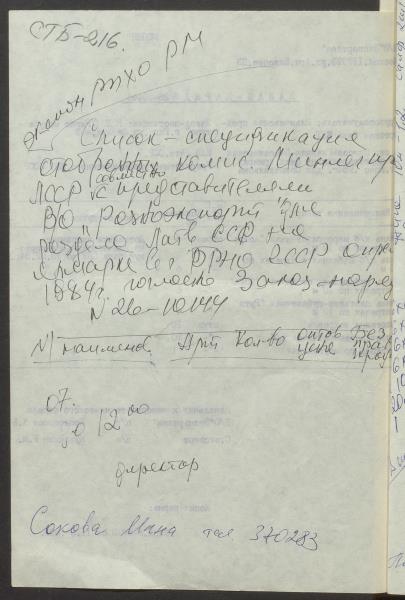 СТБ-216.
РПХО РМ
Список-спецификация
отобранных комис. Минлегпр
ЛССР совместно с представителями
ВО "Разноэкспорт" для
раздела Латв ССР на
ярмарке в г. БРНО ЧССР
1984г. согласно Заказ-наряд
N 26-10144
N наимен. Арт Кол-во оптов цена Без
07.
до 12 00
директор
Сокова Инна тел 370283